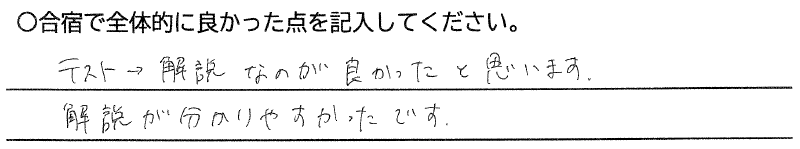 ○合宿で全体的に良かった点を記入してください。
テスト→解説なのが良かったと思います.
解説が分かりやすかったです.